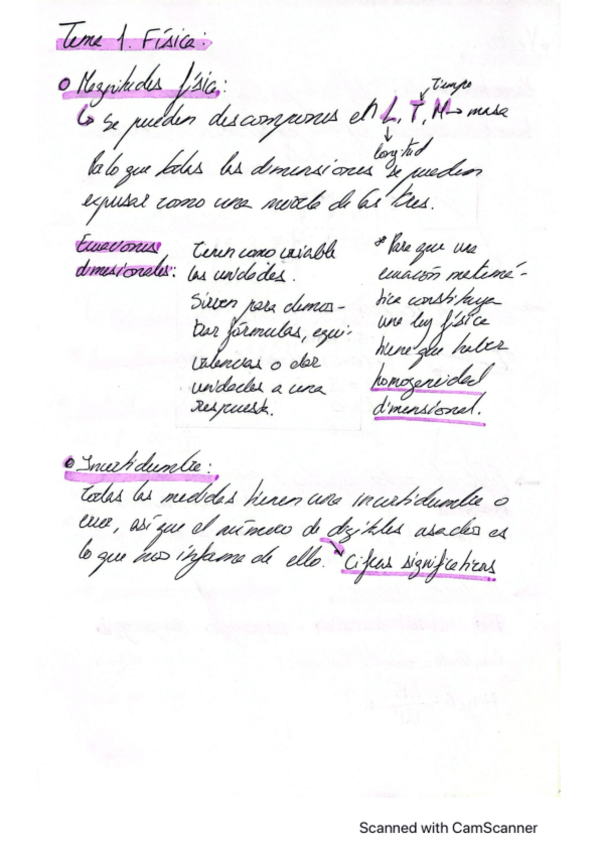 Tema 1. Física:
Magnitudes física:
Se pueden descomponer en L, T, M → masa
Tiempo
longitud
Por lo que todas las dimensiones se pueden
expresar como una mezcla de las tres.
Ecuaciones
dimensionales:
Tienen como variable
las unidades.
Sirven para demos-
trar fórmulas, equi-
valencias o dar
unidades a una
respuesta.
* Para que una
ecuación matemá-
tica constituya
una ley física
tiene que haber
homogeneidad
dimensional.
Incertidumbre:
Todas las medidas tienen una incertidumbre o
error, así que el número de dígitos usados es
lo que nos informa de ello.
Cifras significativas
Scanned with CamScanner